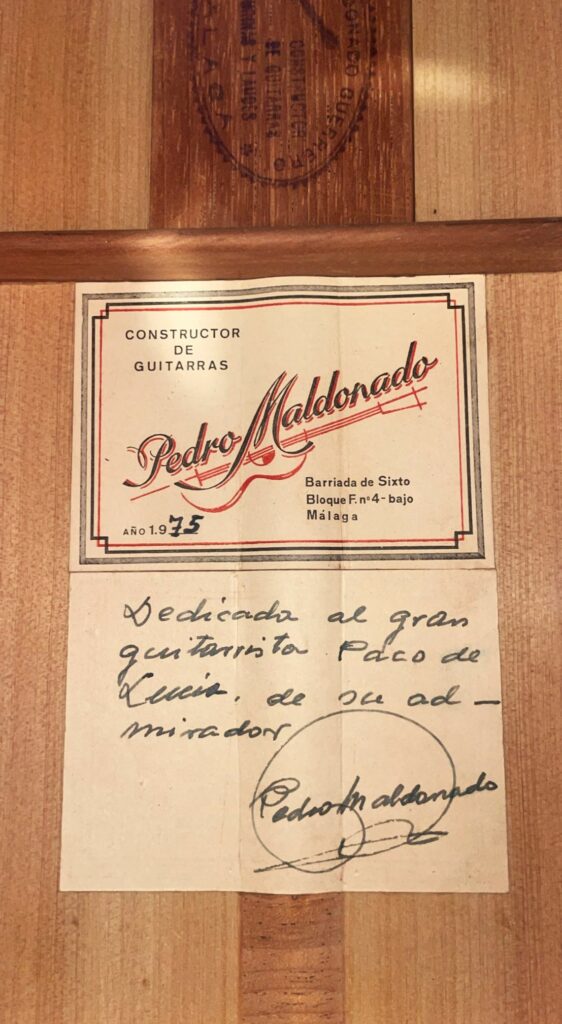 MALDONADO GUERRERO
CONSTRUCTOR
DE GUITARRAS
Y LAUDES
MALAGA
CONSTRUCTOR
DE
GUITARRAS
Pedro Maldonado
Barriada de Sixto
Bloque F. nº 4 - bajo
Málaga
AÑO 1.975
Dedicada al gran
guitarrista Paco de
Lucía, de su ad-
mirador
Pedro Maldonado